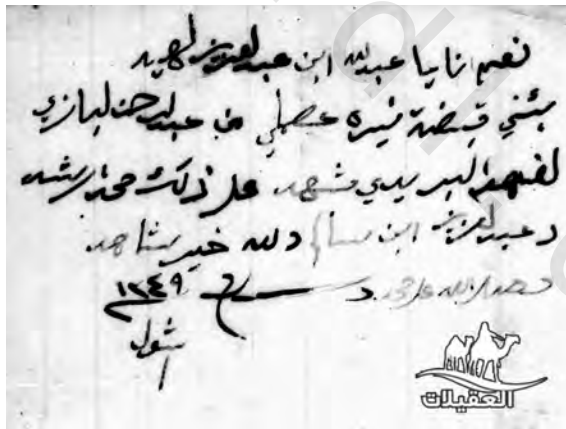 نعم انا يا عبدالله ابن عبدالعزيز
بئني قبضة نيره من عبدالرحمن البازي
لفهد البريدي شهد على ذلك محمد الرشد
وعبدالعزيز ابن سالم والله خير شاهد
وصلى الله على محمد وسلم ١٢٤٩
شول
١
العقيلات